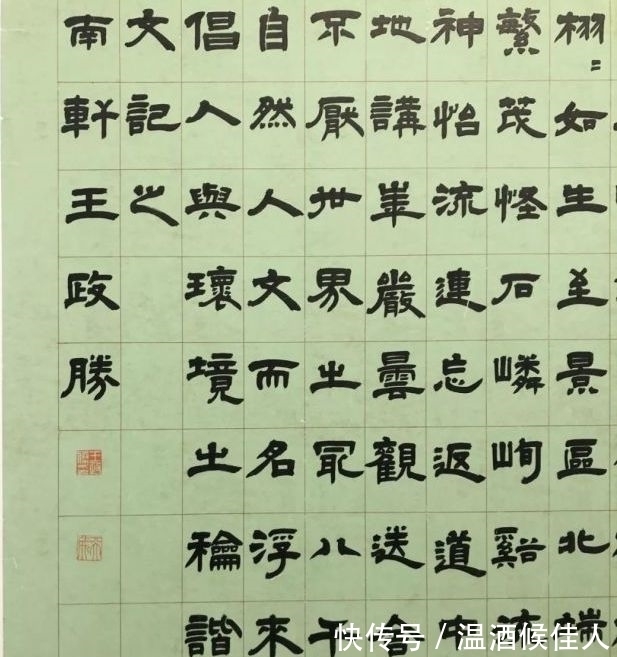 栩〻如生至景區北端
繁茂怪石嶙峋谿流
神怡流連忘返道
地講崋嚴曇觀送
不厭世界之冣八千
自然人文而名浮來
倡人與環境之龢諧
文記之
南軒王政勝
快传号 / 温酒候佳人